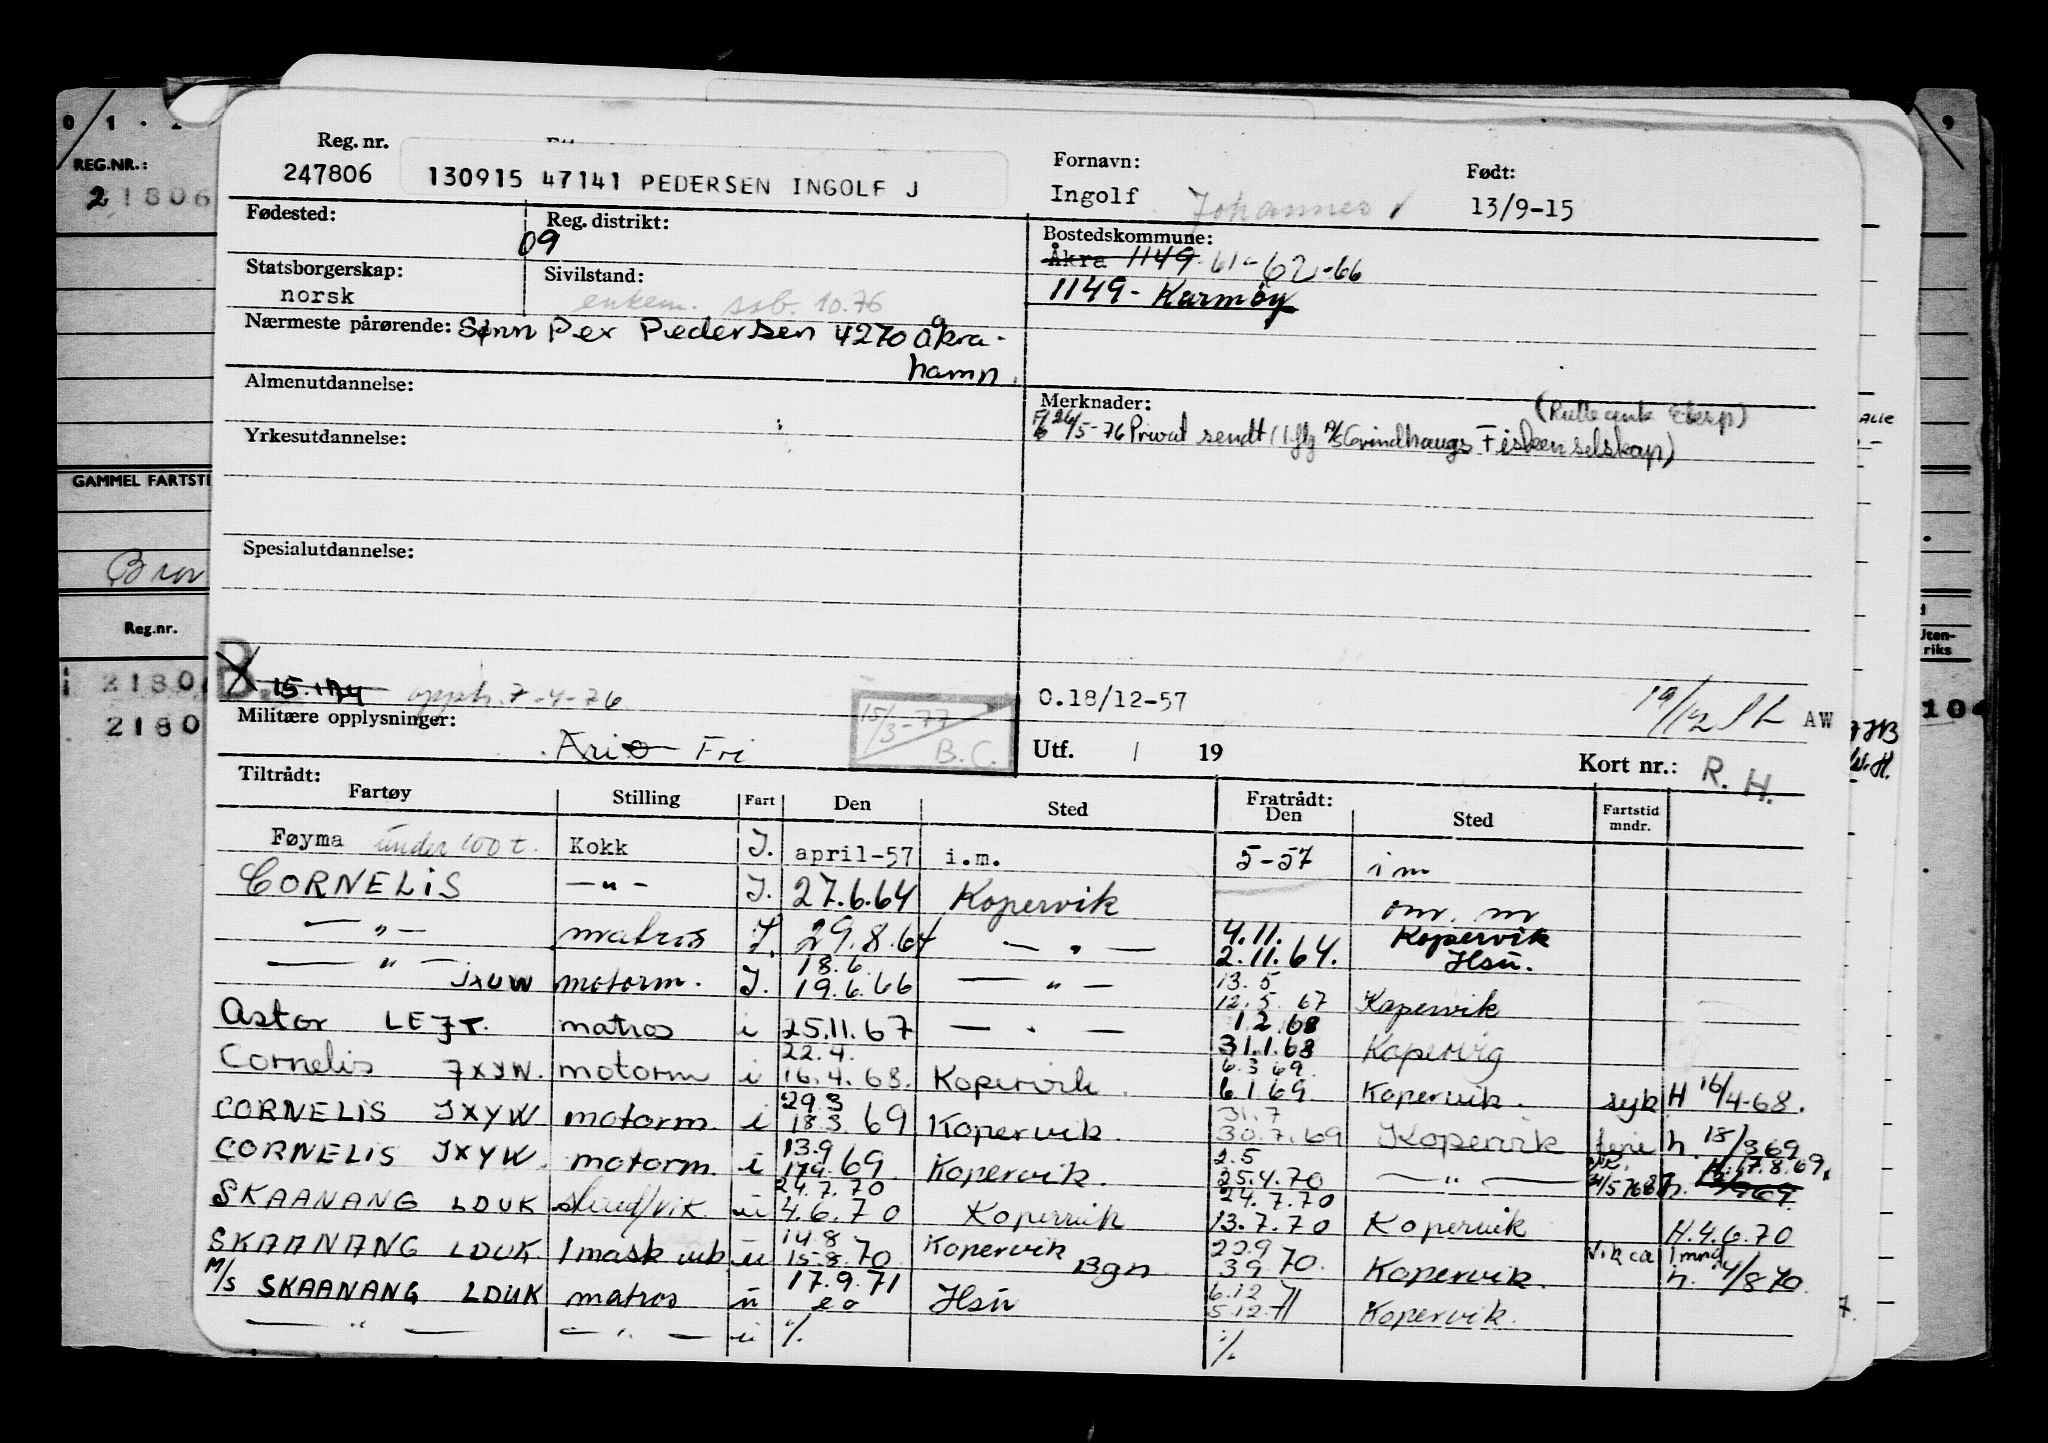 Reg. nr. Fornavn: Født:
247806 130915 47141 PEDERSEN INGOLF J Ingolf Johannes 13/9-15
REG.NR.:
21806
Fødested: Reg. distrikt: Bostedskommune:
09 Åkra 1149 61-62-66
Statsborgerskap: Sivilstand: 1149 - Karmøy
norsk enkem. ssb. 10.76
Nærmeste pårørende: Sønn Per Pedersen 4270 Åkra-
hamn.
Almenutdannelse: Merknader:
26/5-76 Privat sendt
Fiskeriselskap)
Yrkesutdannelse:
GAMMEL FARTSTI
Spesialutdannelse:
Reg.nr.
B 15.174 opph. 7-4-76 O.18/12-57 19/12 AW
15/3-77
B.C.
Militære opplysninger: Fri Utf. / 19 Kort nr.: R. H.
Tiltrådt: Fratrådt:
Fartøy Stilling Fart Den Sted Den Sted Fartstid mndr.
Føyma under 100 t. Kokk I. april-57 i.m. 5-57 i m
CORNELIS —"— I. 27.6.64 Kopervik om. m
—"— matros I. 29.8.64 —"— 4.11. 2.11.64. Kopervik Hsu.
—"— JXUW motorm. I. 18.6. 19.6.66 —"— 13.5 12.5.67 Kopervik
Astor LEJT. matros i 25.11.67 —"— 1.2.68 31.1.68 Kopervig
Cornelis JXYW. motorm i 22.4. 16.4.68. Kopervik 6.3.69. 6.1.69 Kopervik. syk H 16/4-68.
CORNELIS JXYW motorm. i 29.3 18.3.69 Kopervik. 31.7 30.7.69 Kopervik ferie h. 18/3 69
CORNELIS JXYW. motorm. i 13.9 17.9.69 Kopervik. 2.5 25.4.70 —"— H. 17.8.69.
SKAANANG LDUK u 24.7.70 4.6.70 Kopervik 24.7.70 13.7.70 Kopervik H.4.6.70
SKAANANG LDUK 1 mask vik u 14.8 15.8.70 Kopervik Bgn 22.9 3.9 70. Kopervik. vik ca 1 mnd h. 4/8 70.
M/S SKAANANG LDUK matros u 17.9.71 Hsu 6.12 5.12.71 Kopervik.
—"— —"— u % %